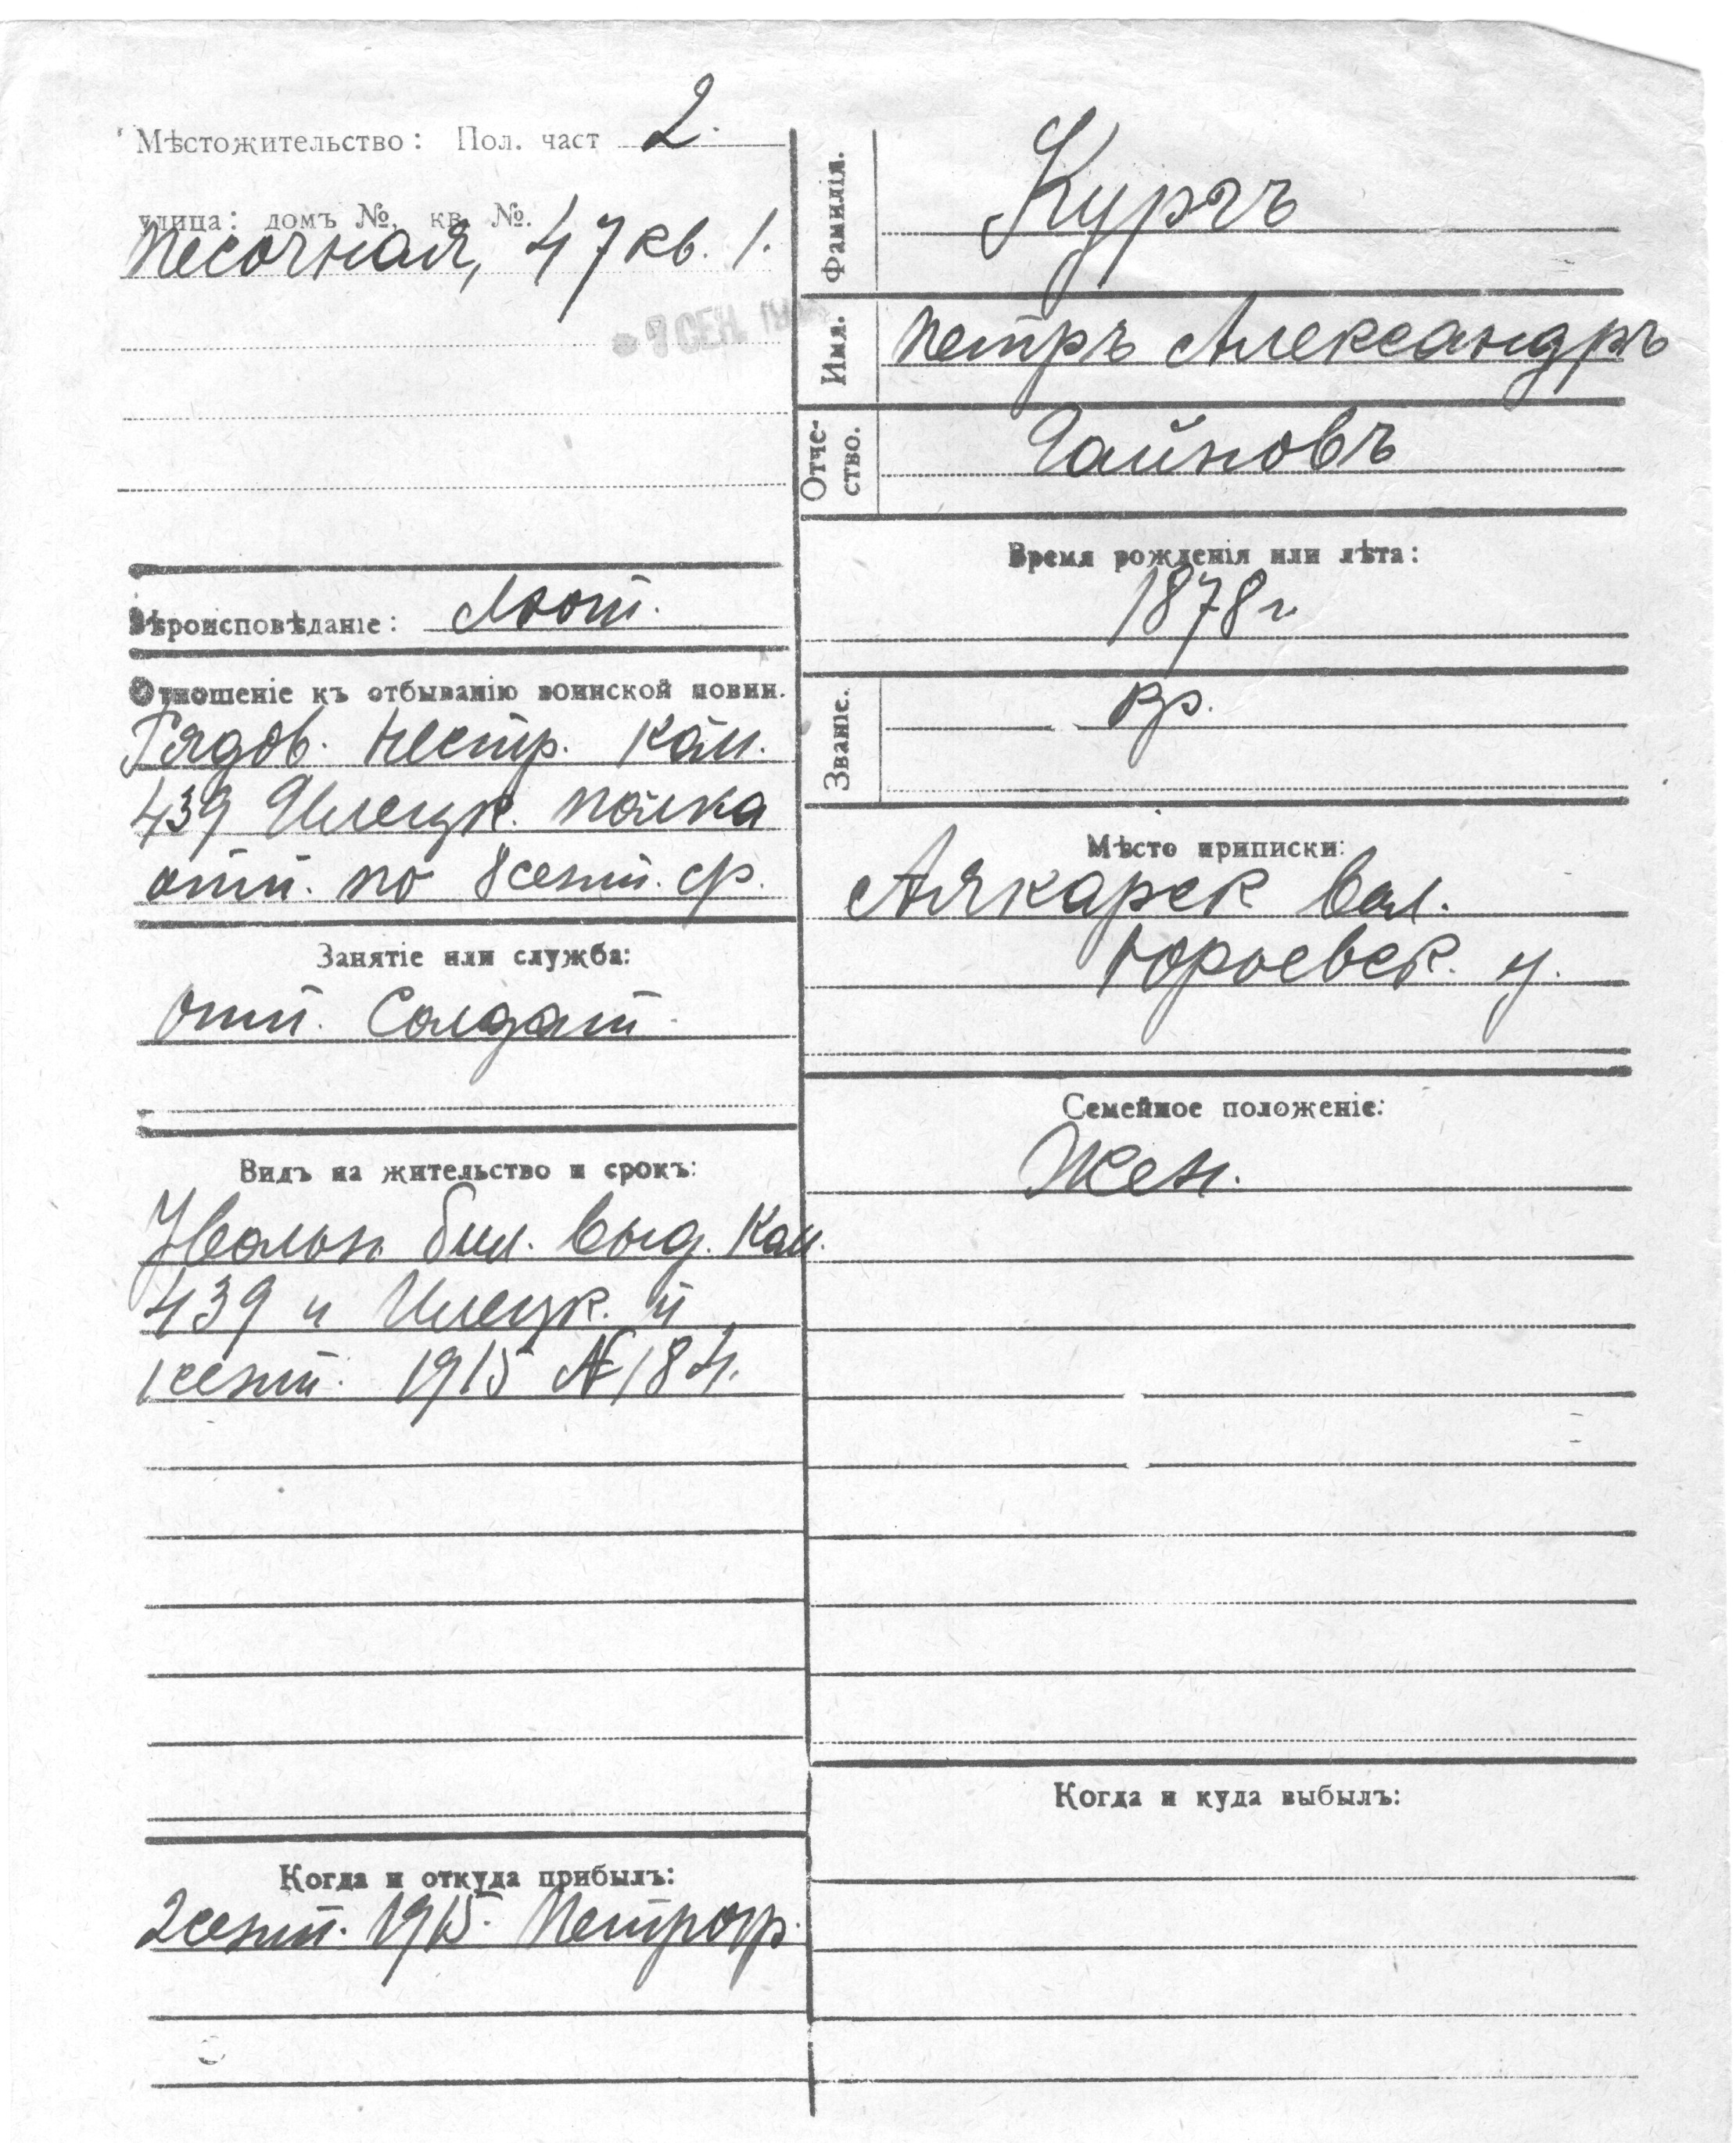 Мѣстожительство: Пол. част 2.
улица: домъ №. кв. №.
Песочная, 47 кв. 1.
СЕН.
Вѣроисповѣданіе: Лют.
Отношеніе къ отбыванію воинской повин.
Рядов. нестр. Кам.
439 Илецк. полка
отп. по 8 сент. ср.
Занятіе или служба:
отп. Солдат.
Видъ на жительство и срокъ:
Увольн. бил. выд. Кам.
439 п Илецк. п
1 сент. 1915 № 184.
Когда и откуда прибылъ:
2 сент. 1915. Петрогр.
Фамилія. Кургъ
Имя. Петръ Александръ
Отчество. Яайновъ
Время рожденія или лѣта:
1878 г
Званіе. кр.
Мѣсто приписки:
вол.
Юрьевск. у.
Семейное положеніе:
Жен.
Когда и куда выбылъ: